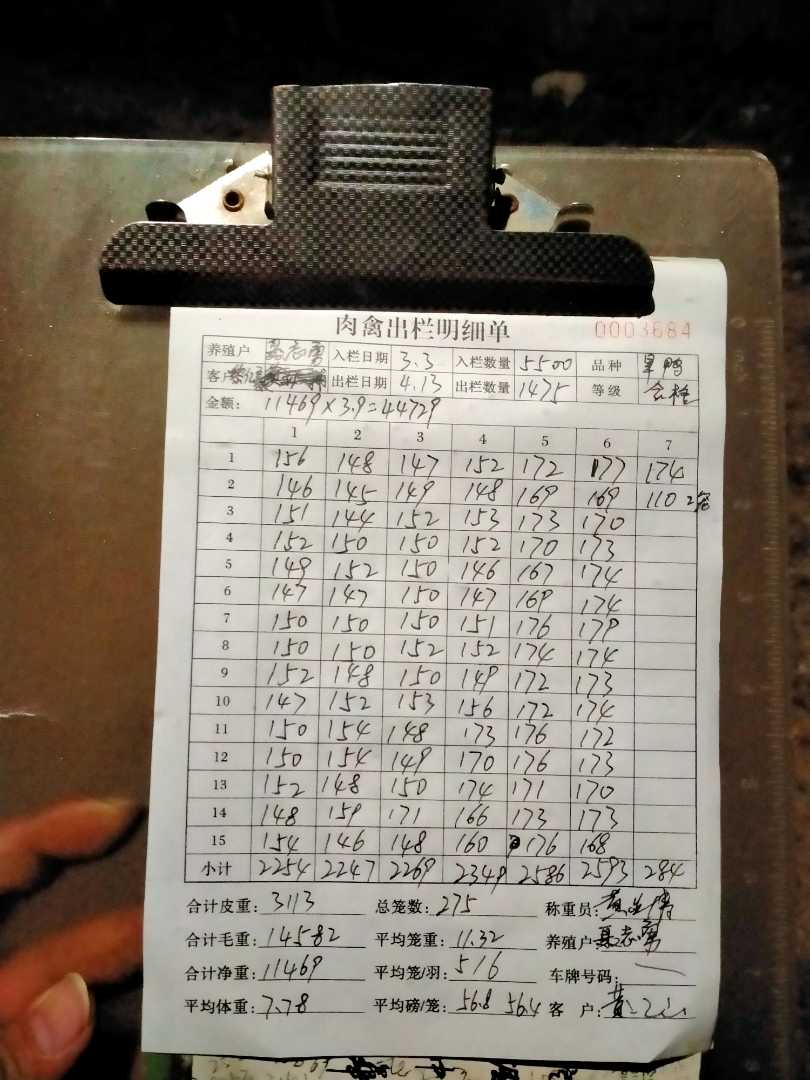 肉禽出栏明细单 0003684
养殖户 入栏日期 3.3 入栏数量 5500 品种
客户 出栏日期 4.13 出栏数量 1475 等级 合格
金额: 11469×3.9=44729
1 2 3 4 5 6 7
1 156 148 147 152 172 177 174
2 146 145 149 148 169 169 110
3 151 144 152 153 173 170
4 152 150 150 152 170 173
5 149 152 150 146 167 174
6 147 147 150 147 169 174
7 150 150 150 151 176 179
8 150 150 152 152 174 174
9 152 148 150 149 172 173
10 147 152 153 156 172 174
11 150 154 148 173 176 172
12 150 154 149 170 176 173
13 152 148 150 174 171 170
14 148 159 171 166 173 173
15 154 146 148 160 176 168
小计 2254 2247 2269 2349 2586 2593 284
合计皮重: 3113 总笼数: 275 称重员:
合计毛重: 14582 平均笼重: 11.32 养殖户
合计净重: 11469 平均笼/羽: 516 车牌号码:
平均体重: 7.78 平均磅/笼: 56.8 56.4 客 户: 黄